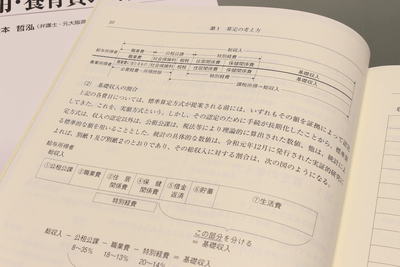 用・養育費
本 哲泓(弁護士・元大阪
22
第1 算定の考え方
総収入
職業費
公租公課
給与所得者
住居関係費
保健関係費
基礎収入
住居関係費
保健関係費
基礎収入
特別経費
課税所得=総収入
(2) 基礎収入の割合
上記の各費目については、標準算定方式が提案される前には、いずれもその額を証拠によって認定
してきた。これを、実額方式という。しかし、その認定のために手続が長期化したことから、標準算
定方式は、収入の認定以外は、公租公課は、税法等により理論的に算出された数値、他は、統計によ
る標準的な額を用いることとした。統計の具体的な数値は、令和元年12月に発行された実証的研究に
よれば、別表1及び別表2のとおりであり、その総収入に対する割合は、次の図のようになる。
給与所得者
総収入
①公租公課
②職業費
③住居関係費
④保健関係費
⑤借金返済
⑥貯蓄
⑦生活費
特別経費
この部分を分ける
=基礎収入
総収入 − 公租公課 − 職業費 − 特別経費 = 基礎収入
8~35% 18~13% 20~14%